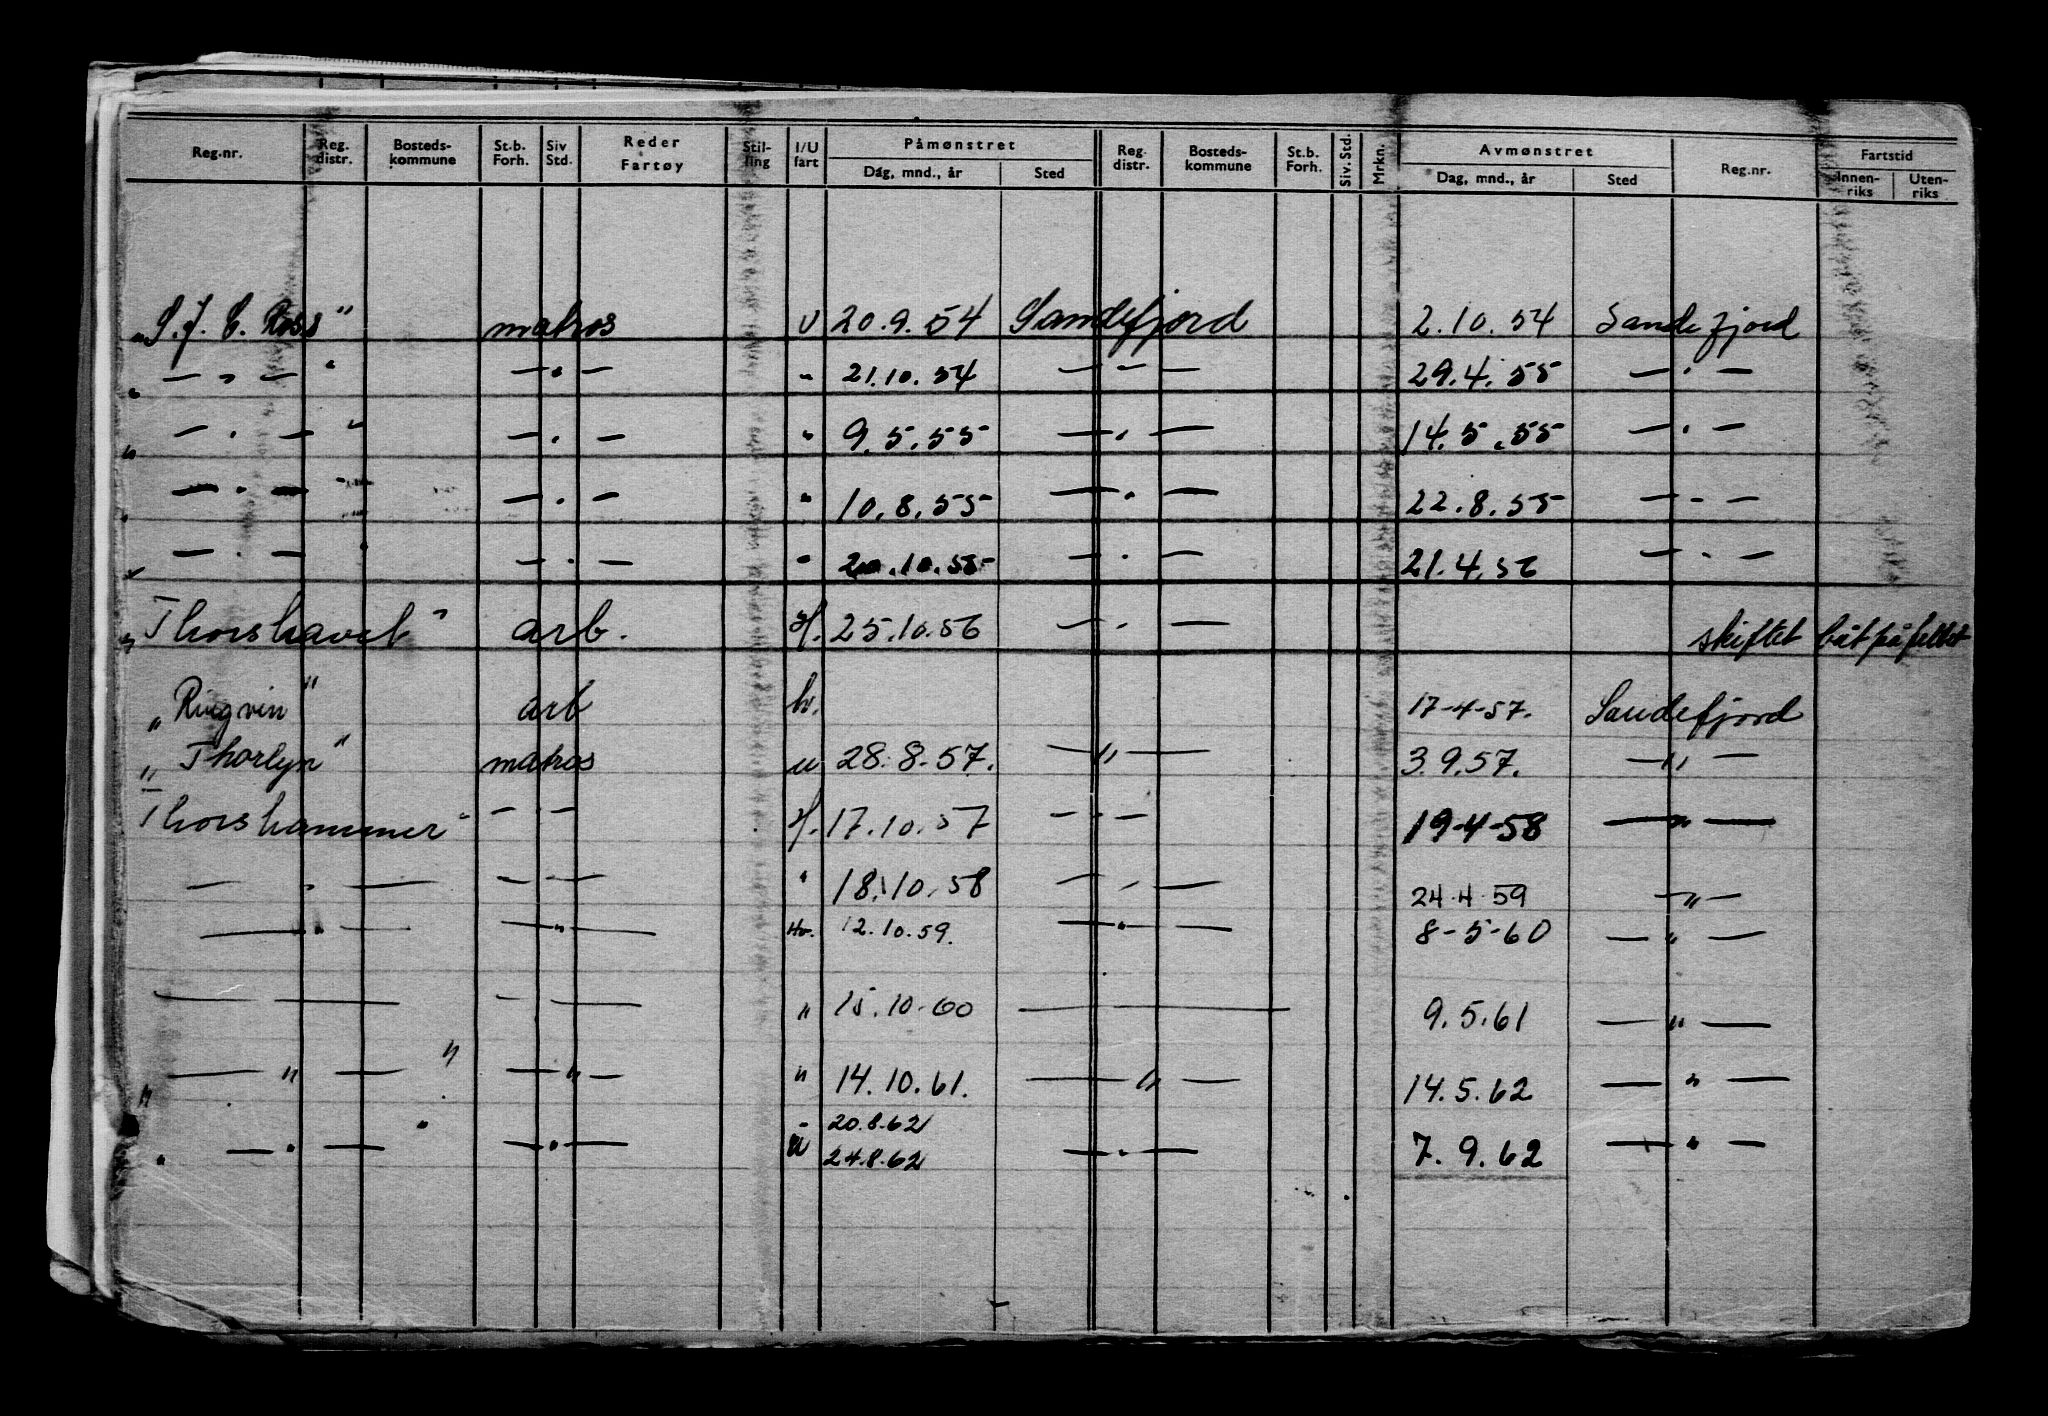 Reg.nr. Reg. distr. Bosteds-kommune St.b. Forh. Siv Std. Reder Fartøy Stil-ling I/U fart Påmønstret Dag, mnd., år Sted Reg. distr. Bosteds-kommune St.b. Forh. Siv. Std. Mrkn. Avmønstret Dag, mnd., år Sted Reg.nr. Fartstid Innen-riks Uten-riks
"S. J. C. Ross" matros U 20.9.54 Sandefjord 2.10.54 Sandefjord
" — " — " — " — " 21.10.54 — — — 29.4.55 — " —
" — " — " — " — " 9.5.55 — " — 14.5.55 — " —
" — " — " — " — " 10.8.55 — " — 22.8.55 — " —
" — " — — " — " 20.10.55 — " — 21.4.56 — " —
"Thorshavet" arb. Hf. 25.10.56 — " — skiftet båt på feltet
"Ringvin" arb hv. 17-4-57. Sandefjord
"Thorlyn" matros u 28.8.57. — " — 3.9.57. — " —
"Thorshammer" — " — Hf. 17.10.57 — " — 19-4-58 — " —
— " — — " — " 18.10.58 — " — 24.4.59 — " —
— " — — " — Hv. 12.10.59. — " — 8-5-60 — " —
— — — — " 15.10.60 — 9.5.61 — " —
" — " — " — " — " 14.10.61. — " — 14.5.62 — " —
20.8.62
" — " — " — " — u 24.8.62 — " — 7.9.62 — " —